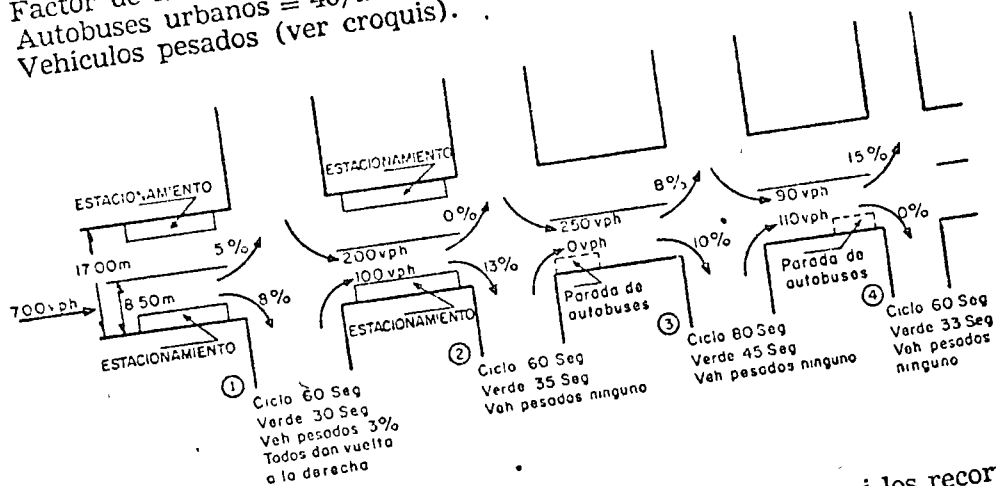 Factor de
Autobuses urbanos = 40/
Vehículos pesados (ver croquis).
ESTACIONAMIENTO
17 00m
700vph
8 50m
5%
8%
ESTACIONAMIENTO
1
Ciclo 60 Seg
Verde 30 Seg
Veh pesados 3%
Todos dan vuelta
a la derecha
ESTACIONAMIENTO
0%
200vph
100 vph
13%
ESTACIONAMIENTO
2
Ciclo 60 Seg
Verde 35 Seg
Veh pesados ninguno
8%
250 vph
0vph
10%
Parada de
autobuses
3
Ciclo 80 Seg
Verde 45 Seg
Veh pesados ninguno
15%
90 vph
110vph
0%
Parada de
autobuses
4
Ciclo 60 Seg
Verde 33 Seg
Veh pesados
ninguno
los recor